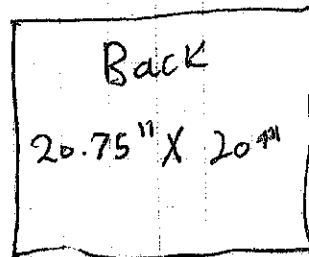 Back
20.75" X 20"